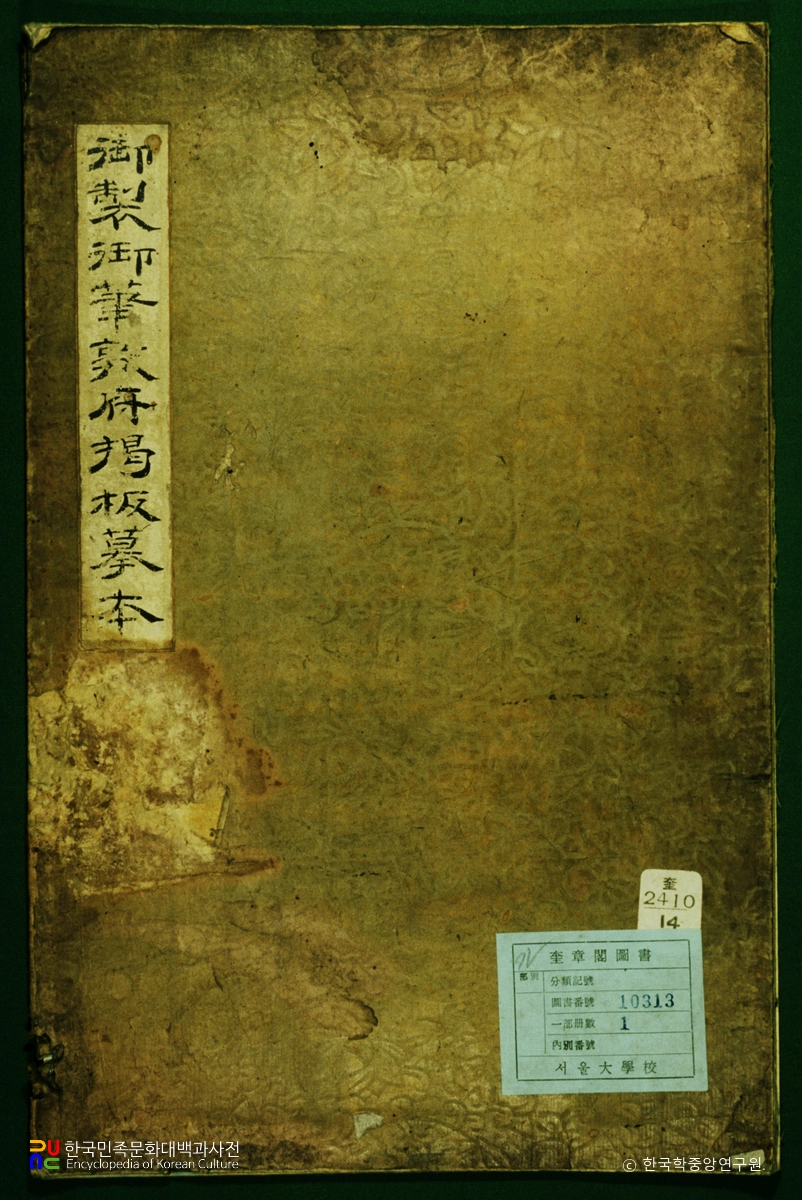 御製御筆敦府揭板摹本
奎
2410
14
奎章閣圖書
部別
分類記號
圖書番號 10313
一部册數 1
內別番號
서울大學校
한국민족문화대백과사전
Encyclopedia of Korean Culture
© 한국학중앙연구원